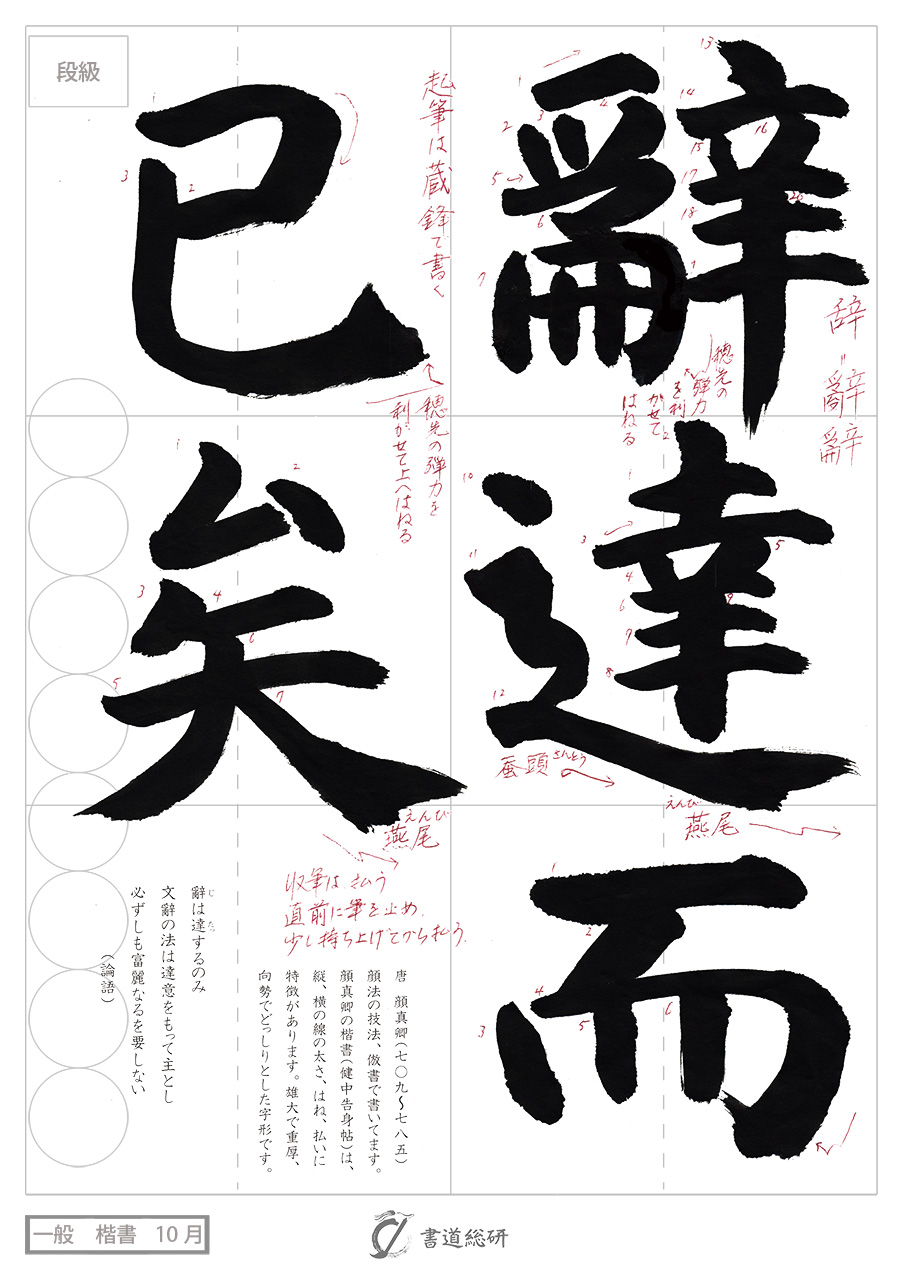 段級
辭達而
已矣
起筆は蔵鋒で書く
穂先の弾力を
利かせて
はねる
辞=辭
辭
穂先の弾力を
利かせて上へはねる
蚕頭さんとう
燕尾えんび
燕尾えんび
収筆は、払う
直前に筆を止め、
少し持ち上げてから払う。
唐 顔真卿(七〇九〜七八五)
顔法の技法、倣書で書いてます。
顔真卿の楷書(健中告身帖)は、
縦、横の線の太さ、はね、払いに
特徴があります。雄大で重厚、
向勢でどっしりとした字形です。
辭は達するのみ
文辭の法は達意をもって主とし
必ずしも富麗なるを要しない
(論語)
一般 楷書 10月
書道総研